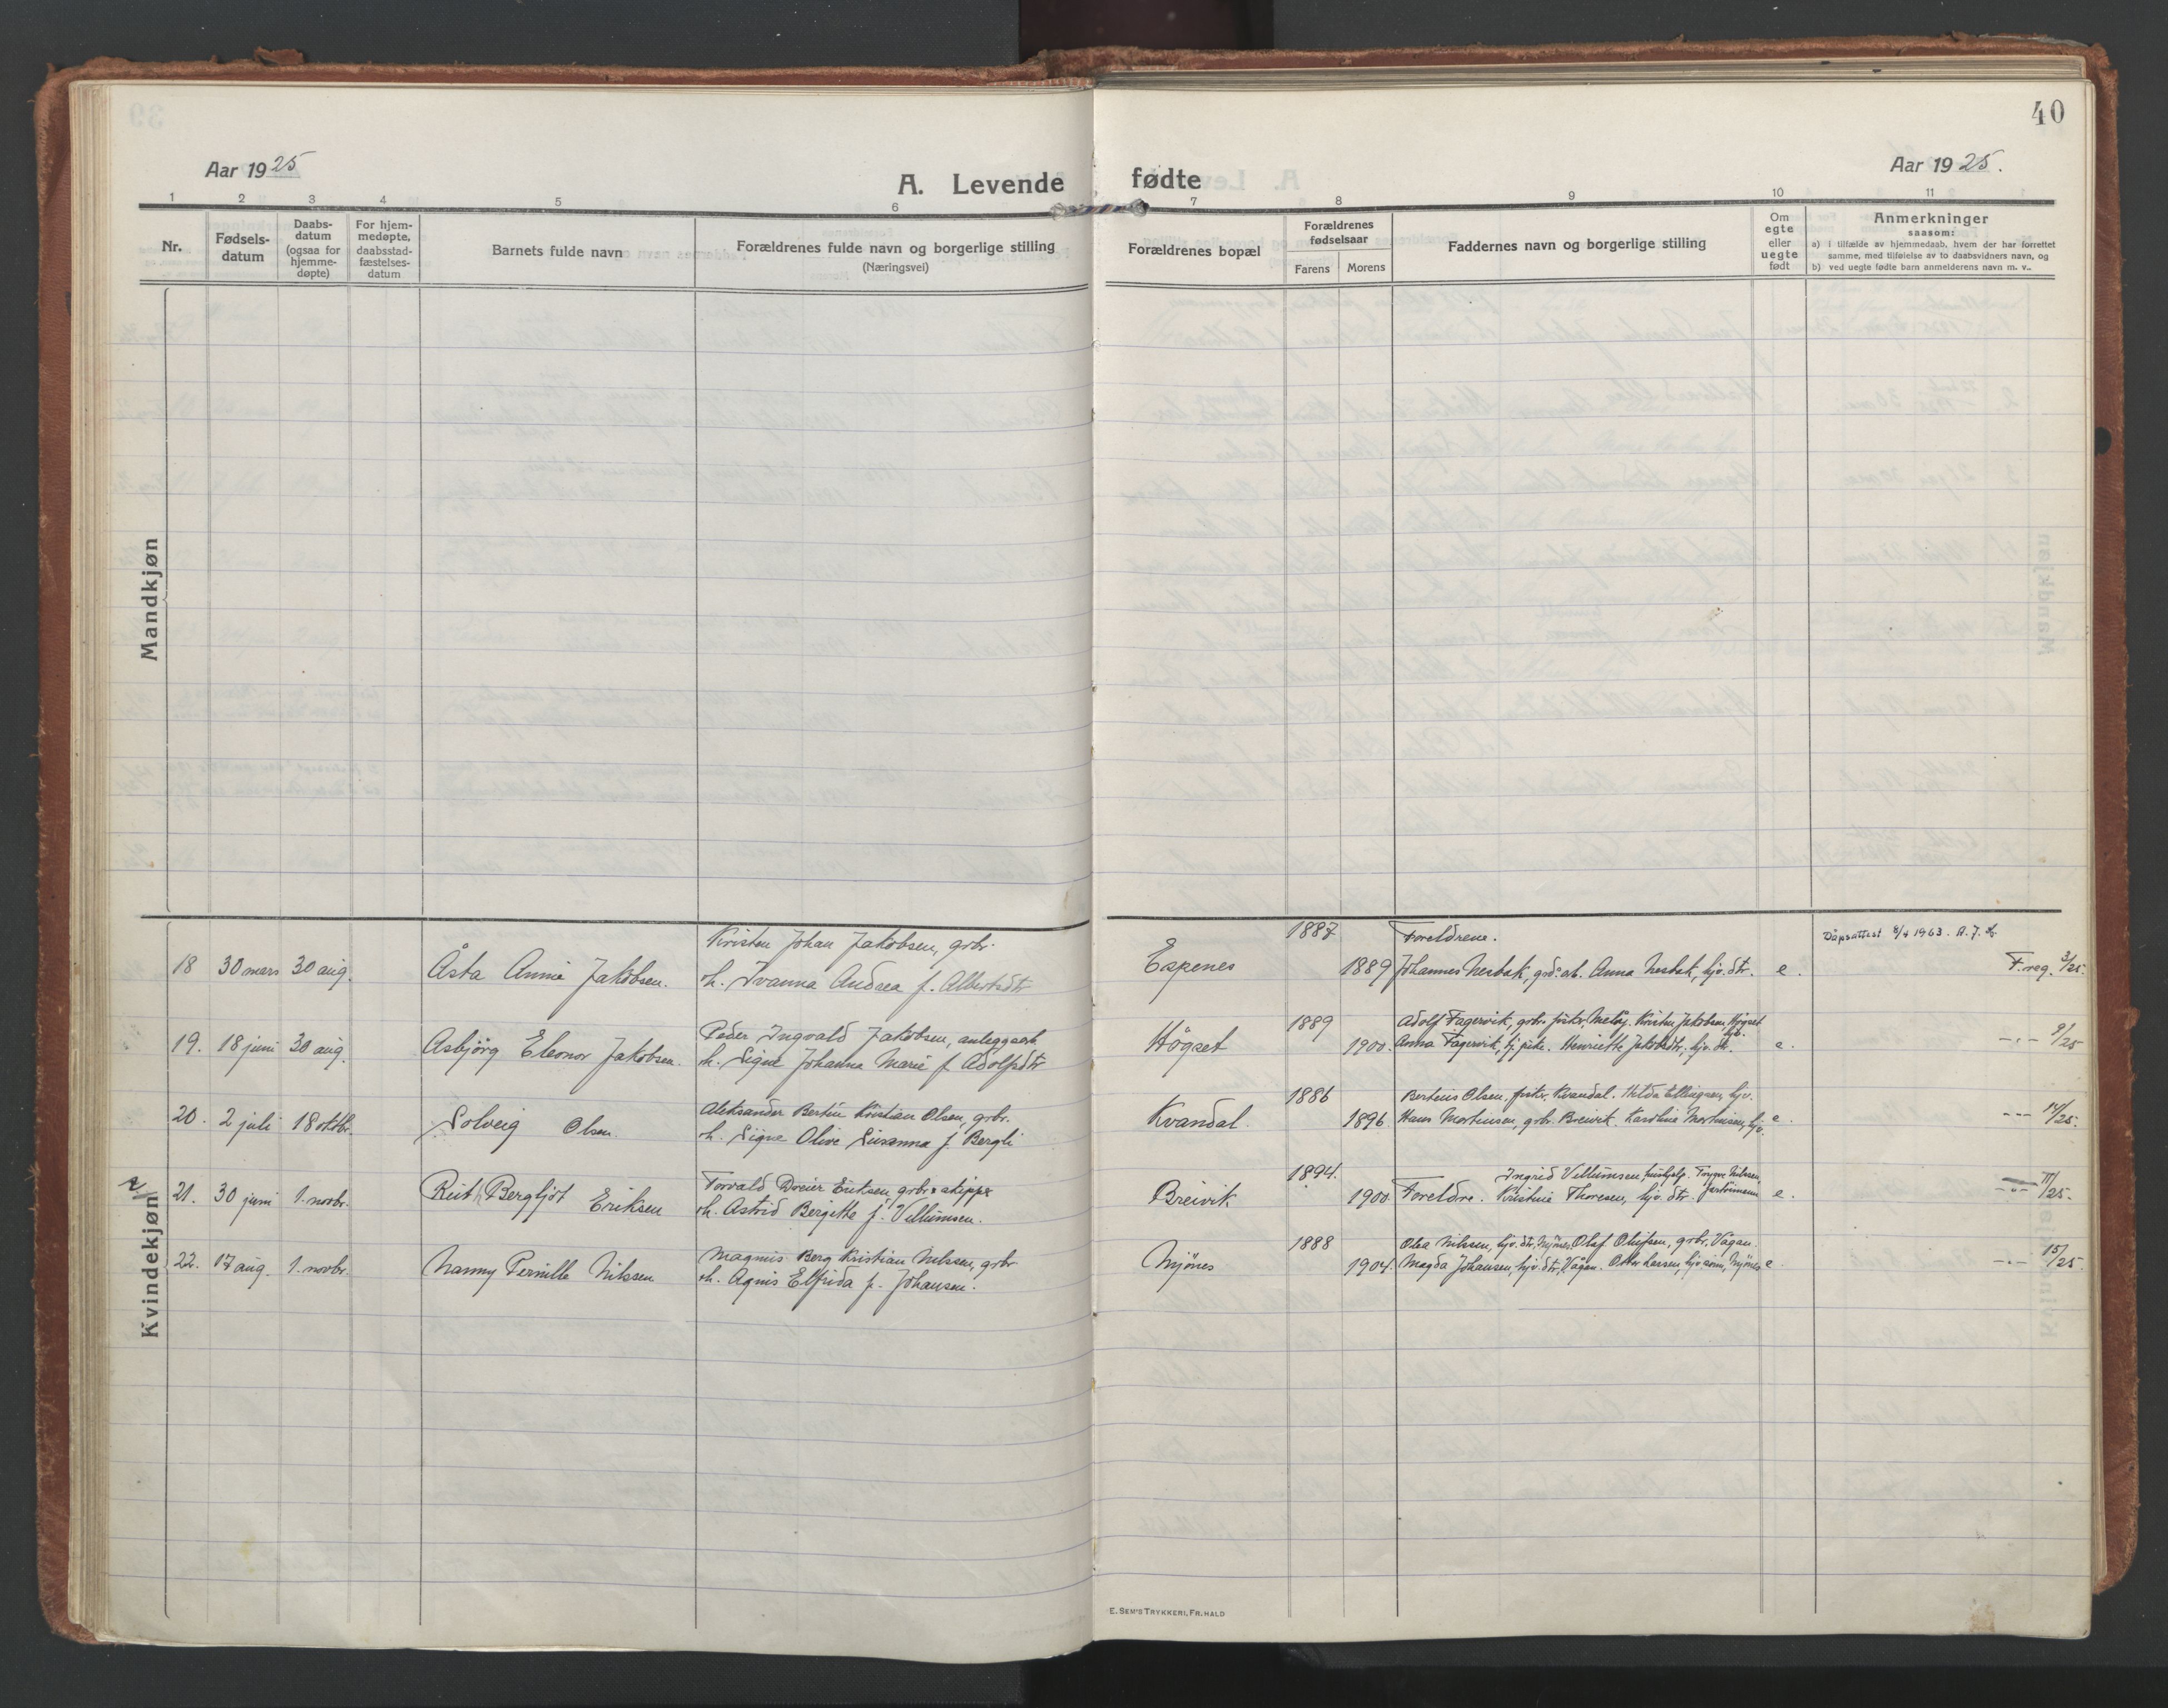 40
Aar 1925
Aar 1925.
A. Levende fødte
1 2 3 4 5 6 7 8 9 10 11
Nr.
Fødsels-
datum
Daabs-
datum
(ogsaa for
hjemme-
døpte)
For hjem-
medøpte,
daabsstad-
fæstelses-
datum
Barnets fulde navn
Forældrenes fulde navn og borgerlige stilling
(Næringsvei)
Forældrenes bopæl
Forældrenes
fødselsaar
Farens Morens
Faddernes navn og borgerlige stilling
Om
egte
eller
uegte
født
Anmerkninger
saasom:
a) i tilfælde av hjemmedaab, hvem der har forrettet
samme, med tilføielse av to daabsvidners navn, og
b) ved uegte fødte barn anmelderens navn m. v..
Mandkjøn
Kvindekjøn
Kristen Johan Jakobsen, grbr. 1887 Foreldrene. Dåpsattest 8/4 1963. A. J.
18 30 mars 30 aug. Åsta Annie Jakobsen. h. Ivanna Andrea f. Albertsdtr Espenes 1889 Johannes Nesbak, grd.arb. Anna Nesbak, hjv. dtr. e. F.reg. 3/25.
Peder Ingvald Jakobsen, anleggsarb 1889 Adolf Fagervik, grbr. fisker, Meløy. Kristen Jakobsen Høgset
19. 18 juni 30 aug. Asbjörg Eleonor Jakobsen. h. Signe Johanna Marie f. Adolfsdtr Högset 1900. Anna Fagervik, tj. pike. Henriette Jakobsdtr, hjv. dtr. e. -"- 9/25
Aleksander Bertin Kristian Olsen, grbr. 1886 Berteus Olsen, fisker, Kvandal. Hilda Ellingsen, hjv.
20. 2 juli 18 oktbr. Solveig Olsen h. Signe Olive Susanna f. Bergli Kvandal. 1896 Hans Mortinsen, grbr. Breivik. Karoline Mortinsen, hjv. e. --- 14/25.
Torvald Dreier Eriksen, grbr & skipper 1894. Ingrid Villumsen, hushjelp. Trygve Nilssen,
21. 30 juni 1. novbr. Ruth Bergljot Eriksen h. Astrid Bergitte f. Villumsen. Breivik 1900 Foreldre. Kristine Thoresen, hjv. dtr. e. -"- 11/25.
Magnus Berg Kristian Nilssen, grbr 1888 Olea Nilssen, hjv. dtr, Mjönes, Olaf Olufsen, grbr, Vågan.
22. 17 aug. 1. novbr. Nanny Pernille Nilssen h. Agnes Elfrida f. Johansen. Mjönes 1904. Magda Johansen, hjv. dtr, Vågan. Otto Larsen, hjv. sönn, Mjönes e. -"- 15/25.
E. SEM'S TRYKKERI, FR.HALD